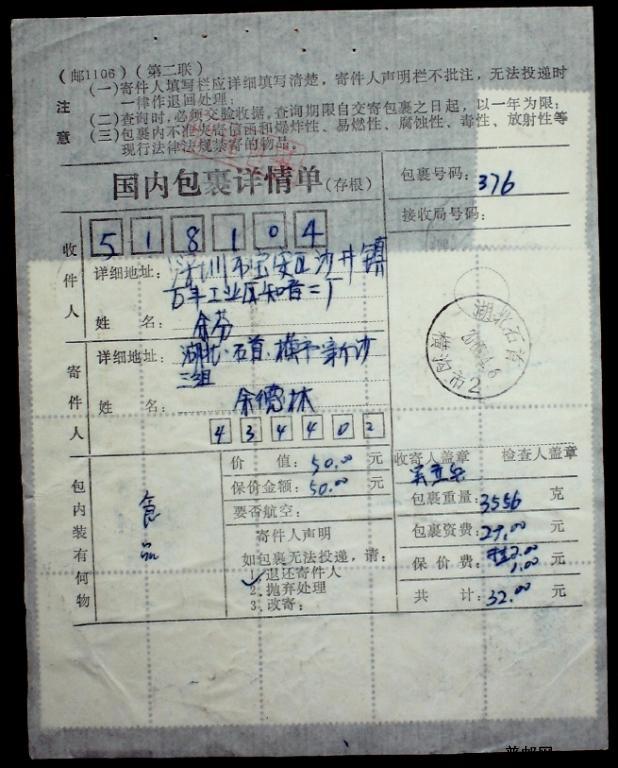 （邮1106）（第二联）
注意
（一）寄件人填写栏应详细填写清楚，寄件人声明栏不批注，无法投递时
一律作退回处理；
（二）查询时，必须交验收据，查询期限自交寄包裹之日起，以一年为限；
（三）包裹内不准夹寄信函和爆炸性、易燃性、腐蚀性、毒性、放射性等
现行法律法规禁寄的物品。
国内包裹详情单（存根）
包裹号码：376
接收局号码：
收件人
518104
详细地址：深圳市宝安区沙井镇
万丰工业区知音二厂
姓名：余芬
寄件人
详细地址：湖北石首横市新沙
三组
姓名：余德林
434402
湖北石首
横沟市
2
包内装有何物
食品
价值：50.00元
保价金额：50.00元
要否航空：
寄件人声明
如包裹无法投递，请：
1.退还寄件人
2.抛弃处理
3.改寄：
收寄人盖章
检查人盖章
包裹重量：3556克
包裹资费：29.00元
保价费：1.00元
共计：32.00元
普邮网